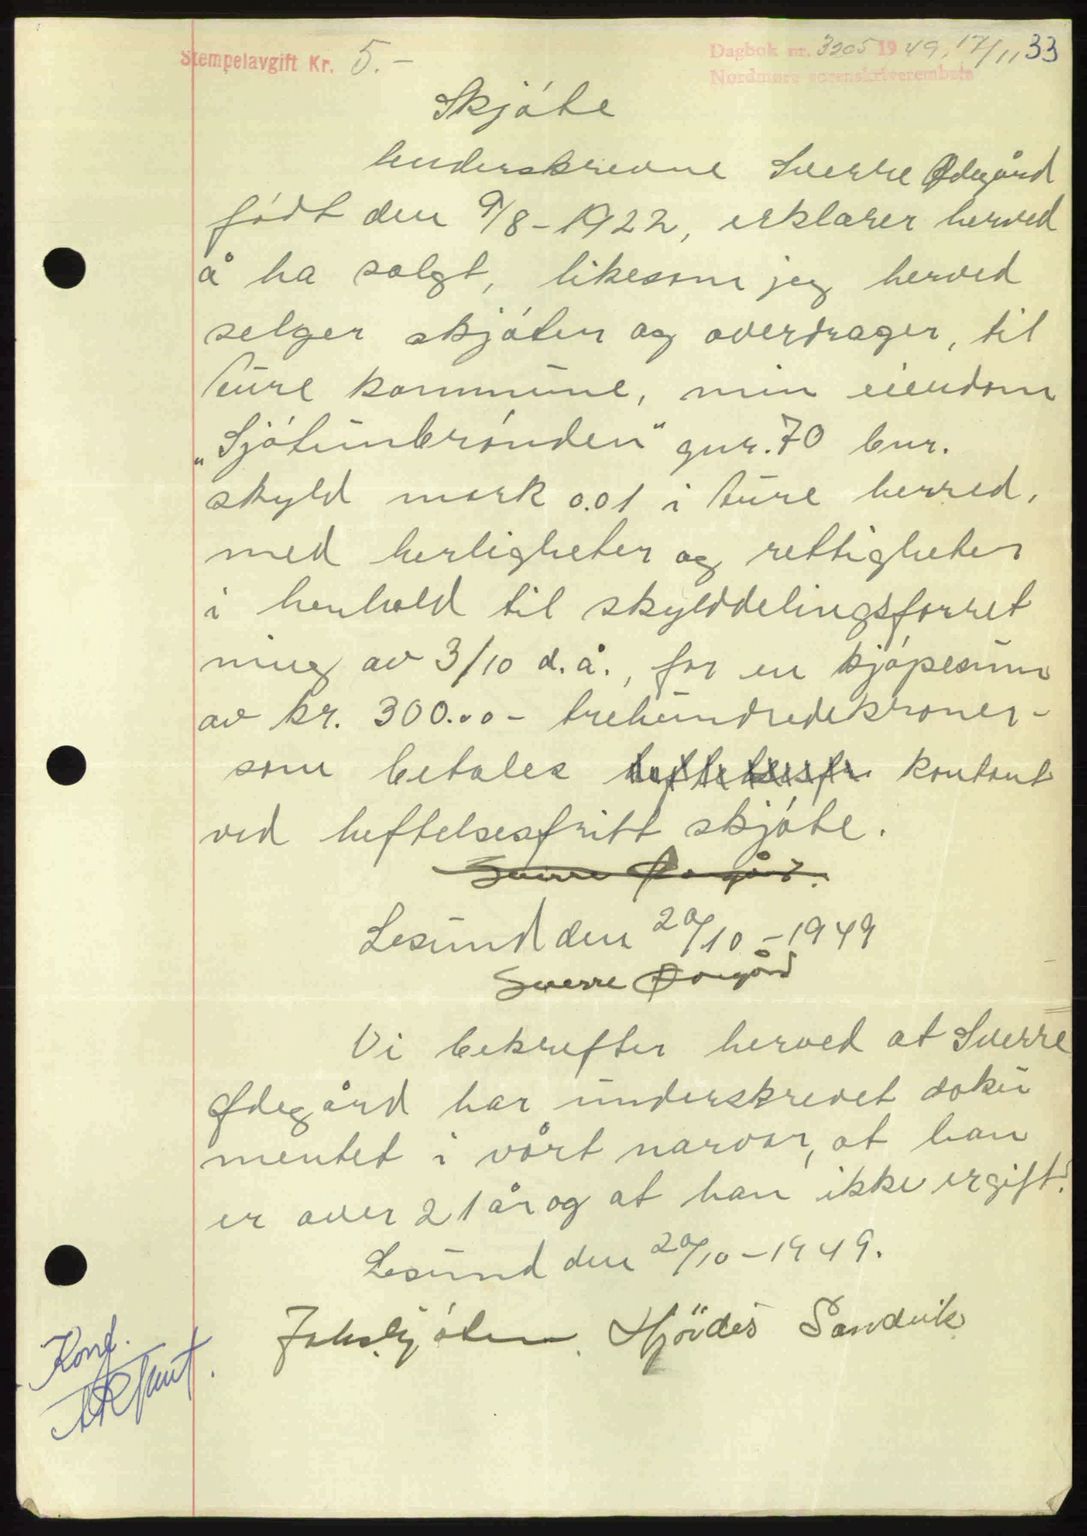 Stempelavgift Kr. 5.-
Dagbok nr. 3205 1949, 17/11 33
Nordmøre sorenskriverembete
Skjóte
Underskrevne Sverre Ødegård
fódt den 9/8-1922, erklærer herved
å ha solgt, likesom jeg herved
selger skjóter og overdrager, til
Ture kommune, min eiendom
„Sjótunbrónden" gnr. 70 bnr.
skyld mark 0.01 i Ture herred,
med herligheter og rettigheter
i henhold til skylddelingsforret
ning av 3/10 d.å., for en kjópesum
av kr. 300.00- trehundredekroner-
som betales kontant
ved heftelsesfritt skjóte.
Sverre Ødegård.
Lesund den 20/10-1949
Sverre Ødegård
Vi bekrefter herved at Sverre
Ødegård har underskrevet doku
mentet i vårt nærvær, at han
er over 21 år og at han ikke er gift.
Lesund den 20/10-1949.
Hjördis Sandvik
Konf.